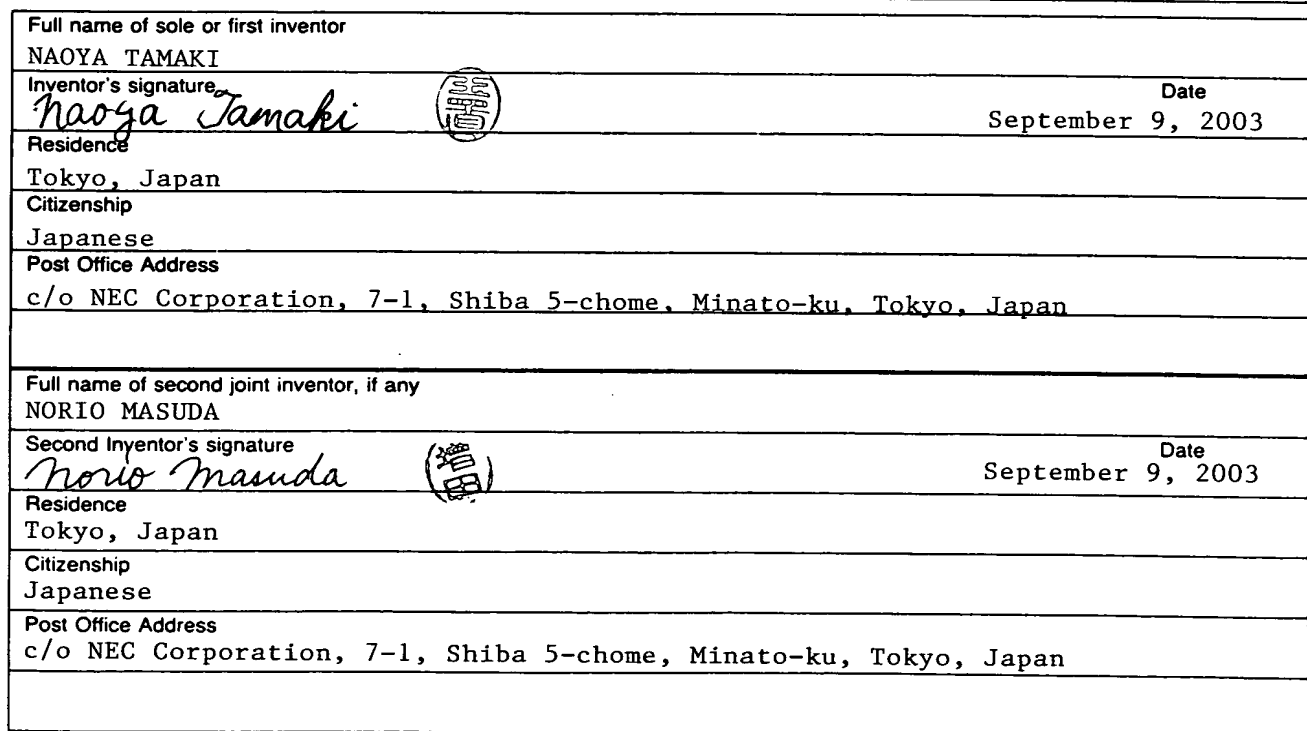 Full name of sole or first inventor
NAOYA TAMAKI
Inventor's signature
Naoya Tamaki
Date
September 9, 2003
Residence
Tokyo, Japan
Citizenship
Japanese
Post Office Address
c/o NEC Corporation, 7-1, Shiba 5-chome, Minato-ku, Tokyo, Japan
Full name of second joint inventor, if any
NORIO MASUDA
Second Inventor's signature
Norio Masuda
増田
Date
September 9, 2003
Residence
Tokyo, Japan
Citizenship
Japanese
Post Office Address
c/o NEC Corporation, 7-1, Shiba 5-chome, Minato-ku, Tokyo, Japan